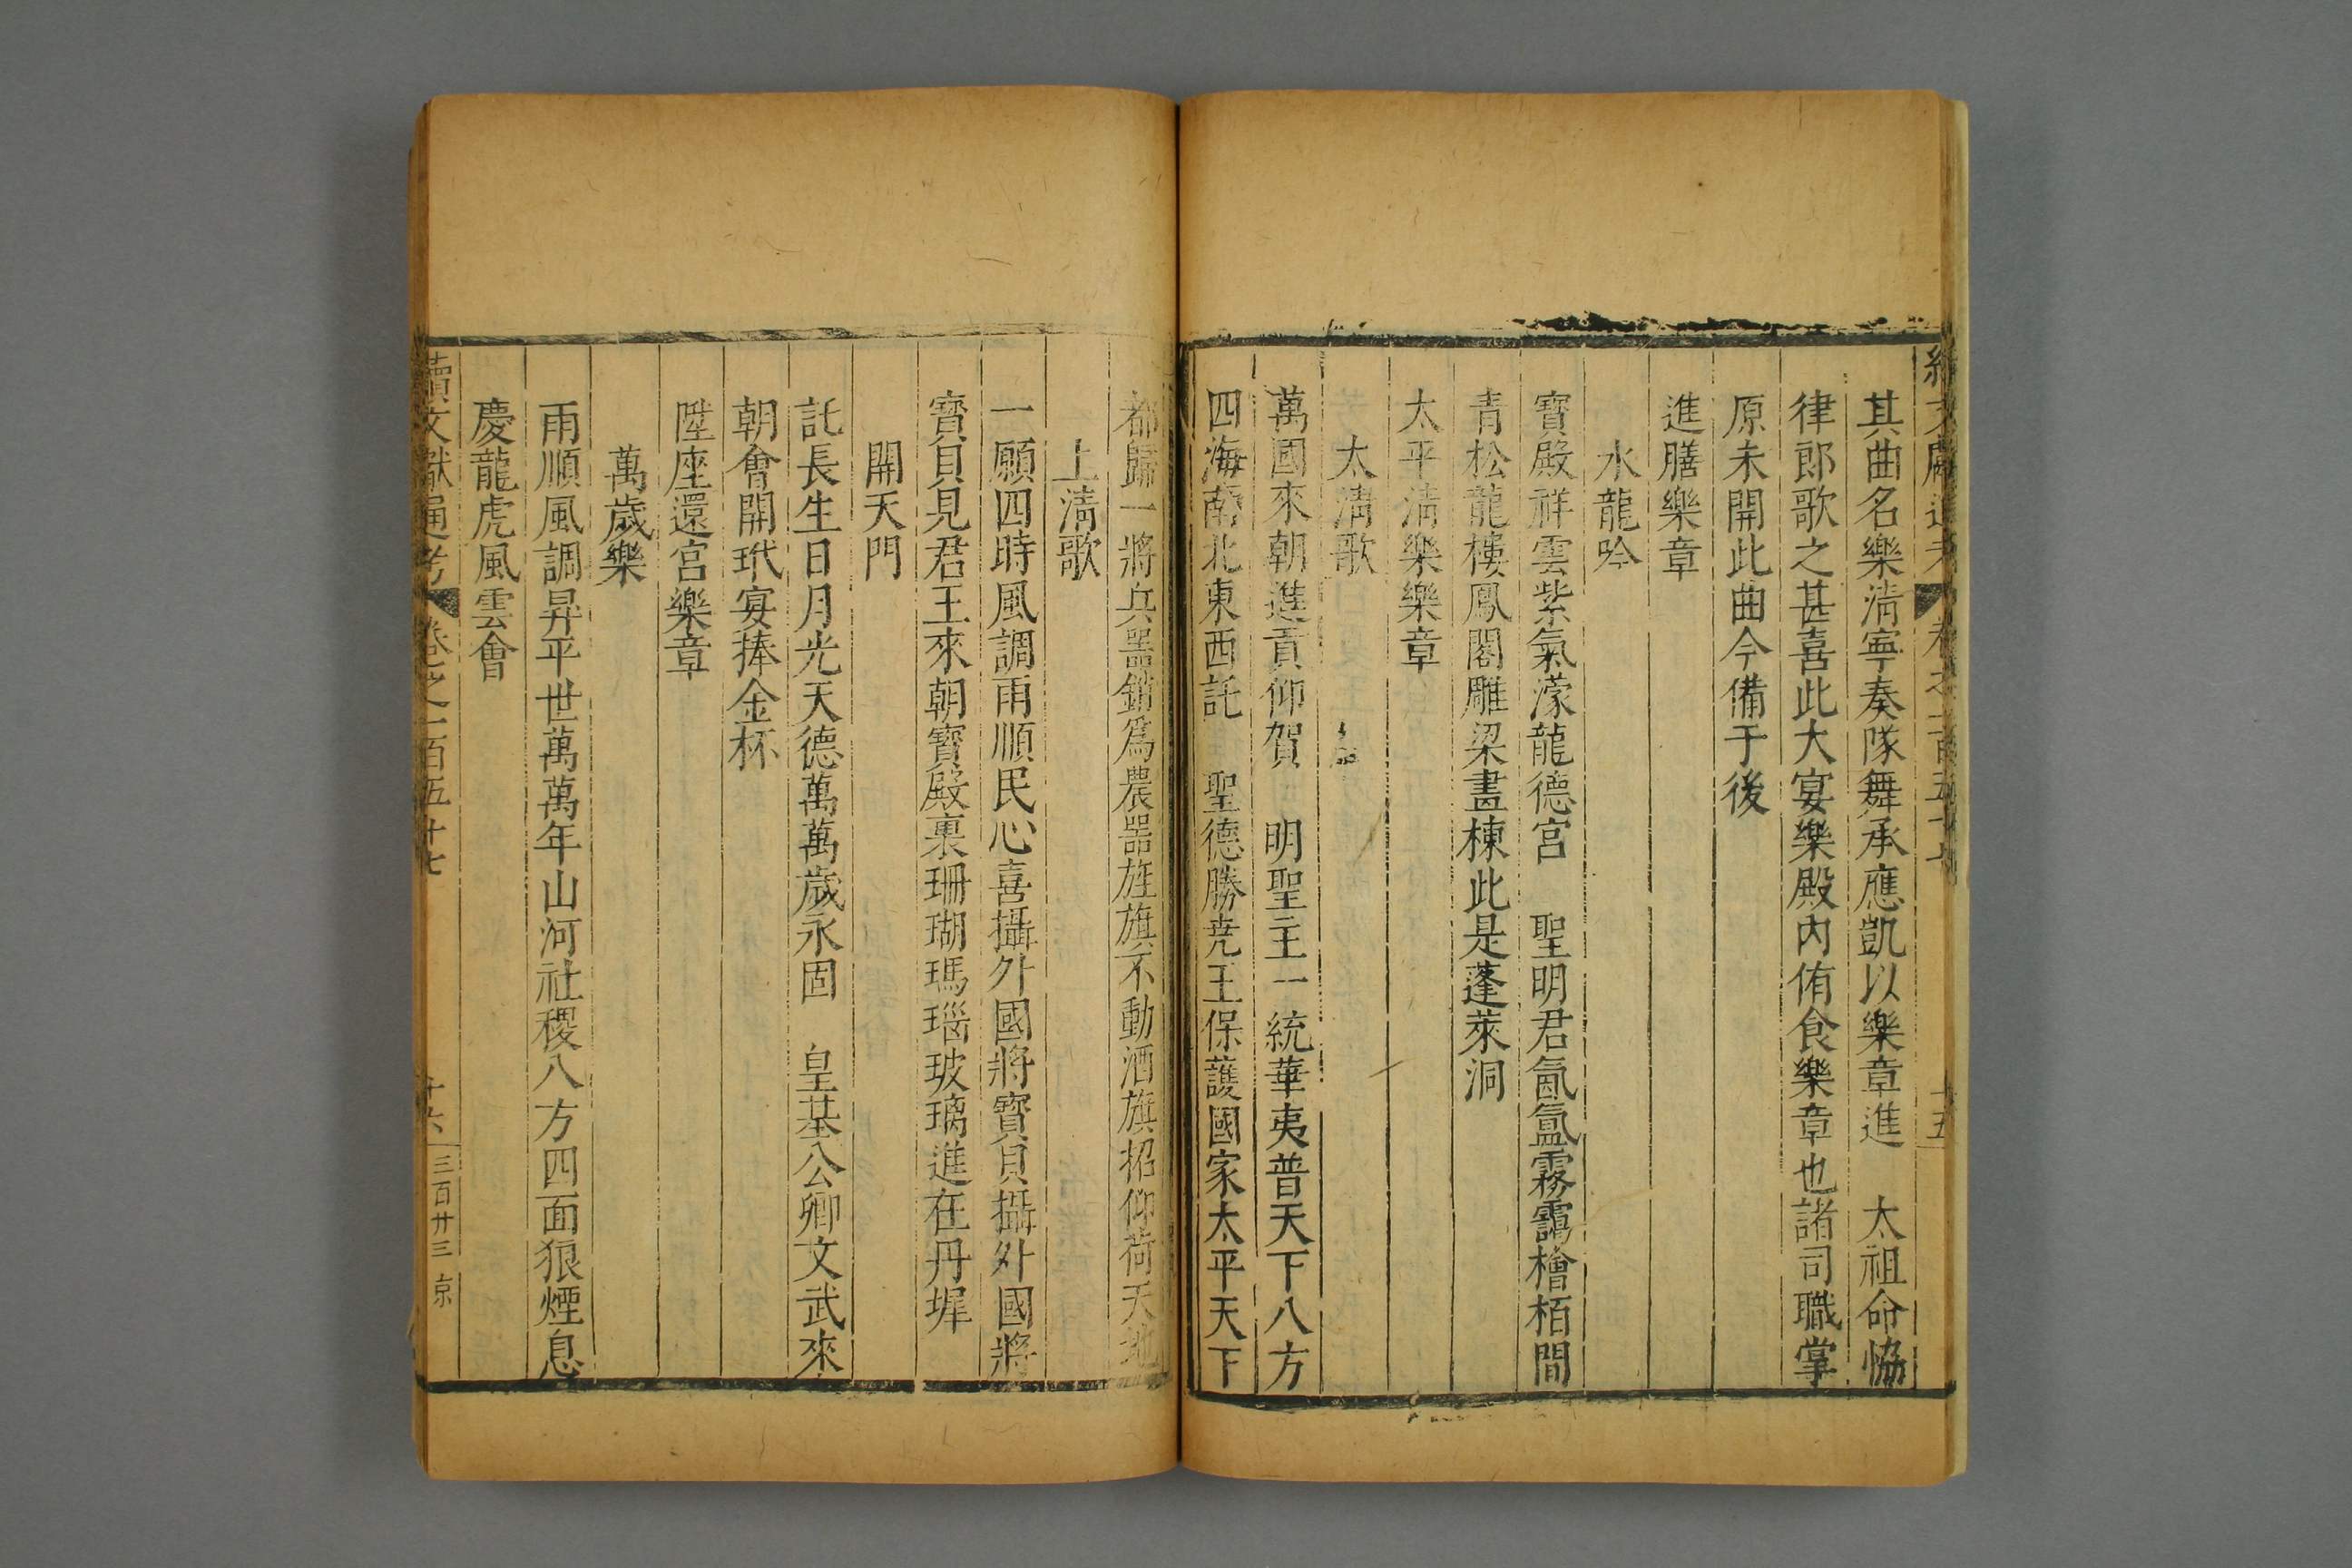 續文獻通考 卷之一百五十七 十五
其曲名樂清寧奏隊舞承應凱以樂章進 太祖命恊
律郎歌之甚喜此大宴樂殿内侑食樂章也諸司職掌
原未開此曲今備于後
進膳樂章
水龍吟
寶殿祥雲紫氣濛龍德宮 聖明君氤氳霧靄檜栢間
青松龍樓鳳閣雕梁畫棟此是蓬萊洞
太平清樂樂章
太清歌
萬國來朝進貢仰賀 明聖主一統華夷普天下八方
四海南北東西託 聖德勝尭王保護國家太平天下
都歸一將兵噐銷爲農噐旌旗不動酒旗招仰荷天地
上清歌
一願四時風調雨順民心喜攝外國將寶貝攝外國將
寶貝見君王來朝寶殿裏珊瑚瑪瑙玻璃進在丹墀
開天門
託長生日月光天德萬萬歲永固 皇基公卿文武來
朝會開玳宴捧金杯
陞座還宮樂章
萬歲樂
雨順風調昇平世萬萬年山河社稷八方四面狼煙息
慶龍虎風雲會
續文獻通考 卷之一百五十七 十六 三百廿三 京